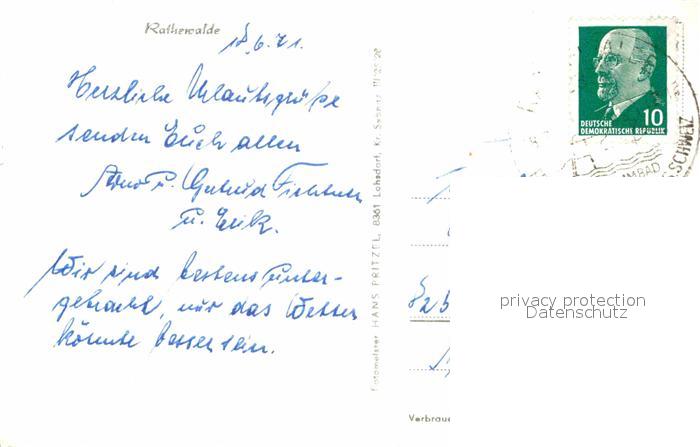 Rathewalde
18.6.71.
Herzliche Urlaubsgrüße
senden Euch allen
Arno u. Gertrud Fichtner
u. Erik.
Wir sind bestens unter-
gebracht, nur das Wetter
könnte besser sein.
Fotomeister HANS PRITZEL, 8361 Lohsdorf, Kr. Sebnitz
DEUTSCHE 10
DEMOKRATISCHE REPUBLIK
SCHWEIZ
825
privacy protection
Datenschutz
Verbrau